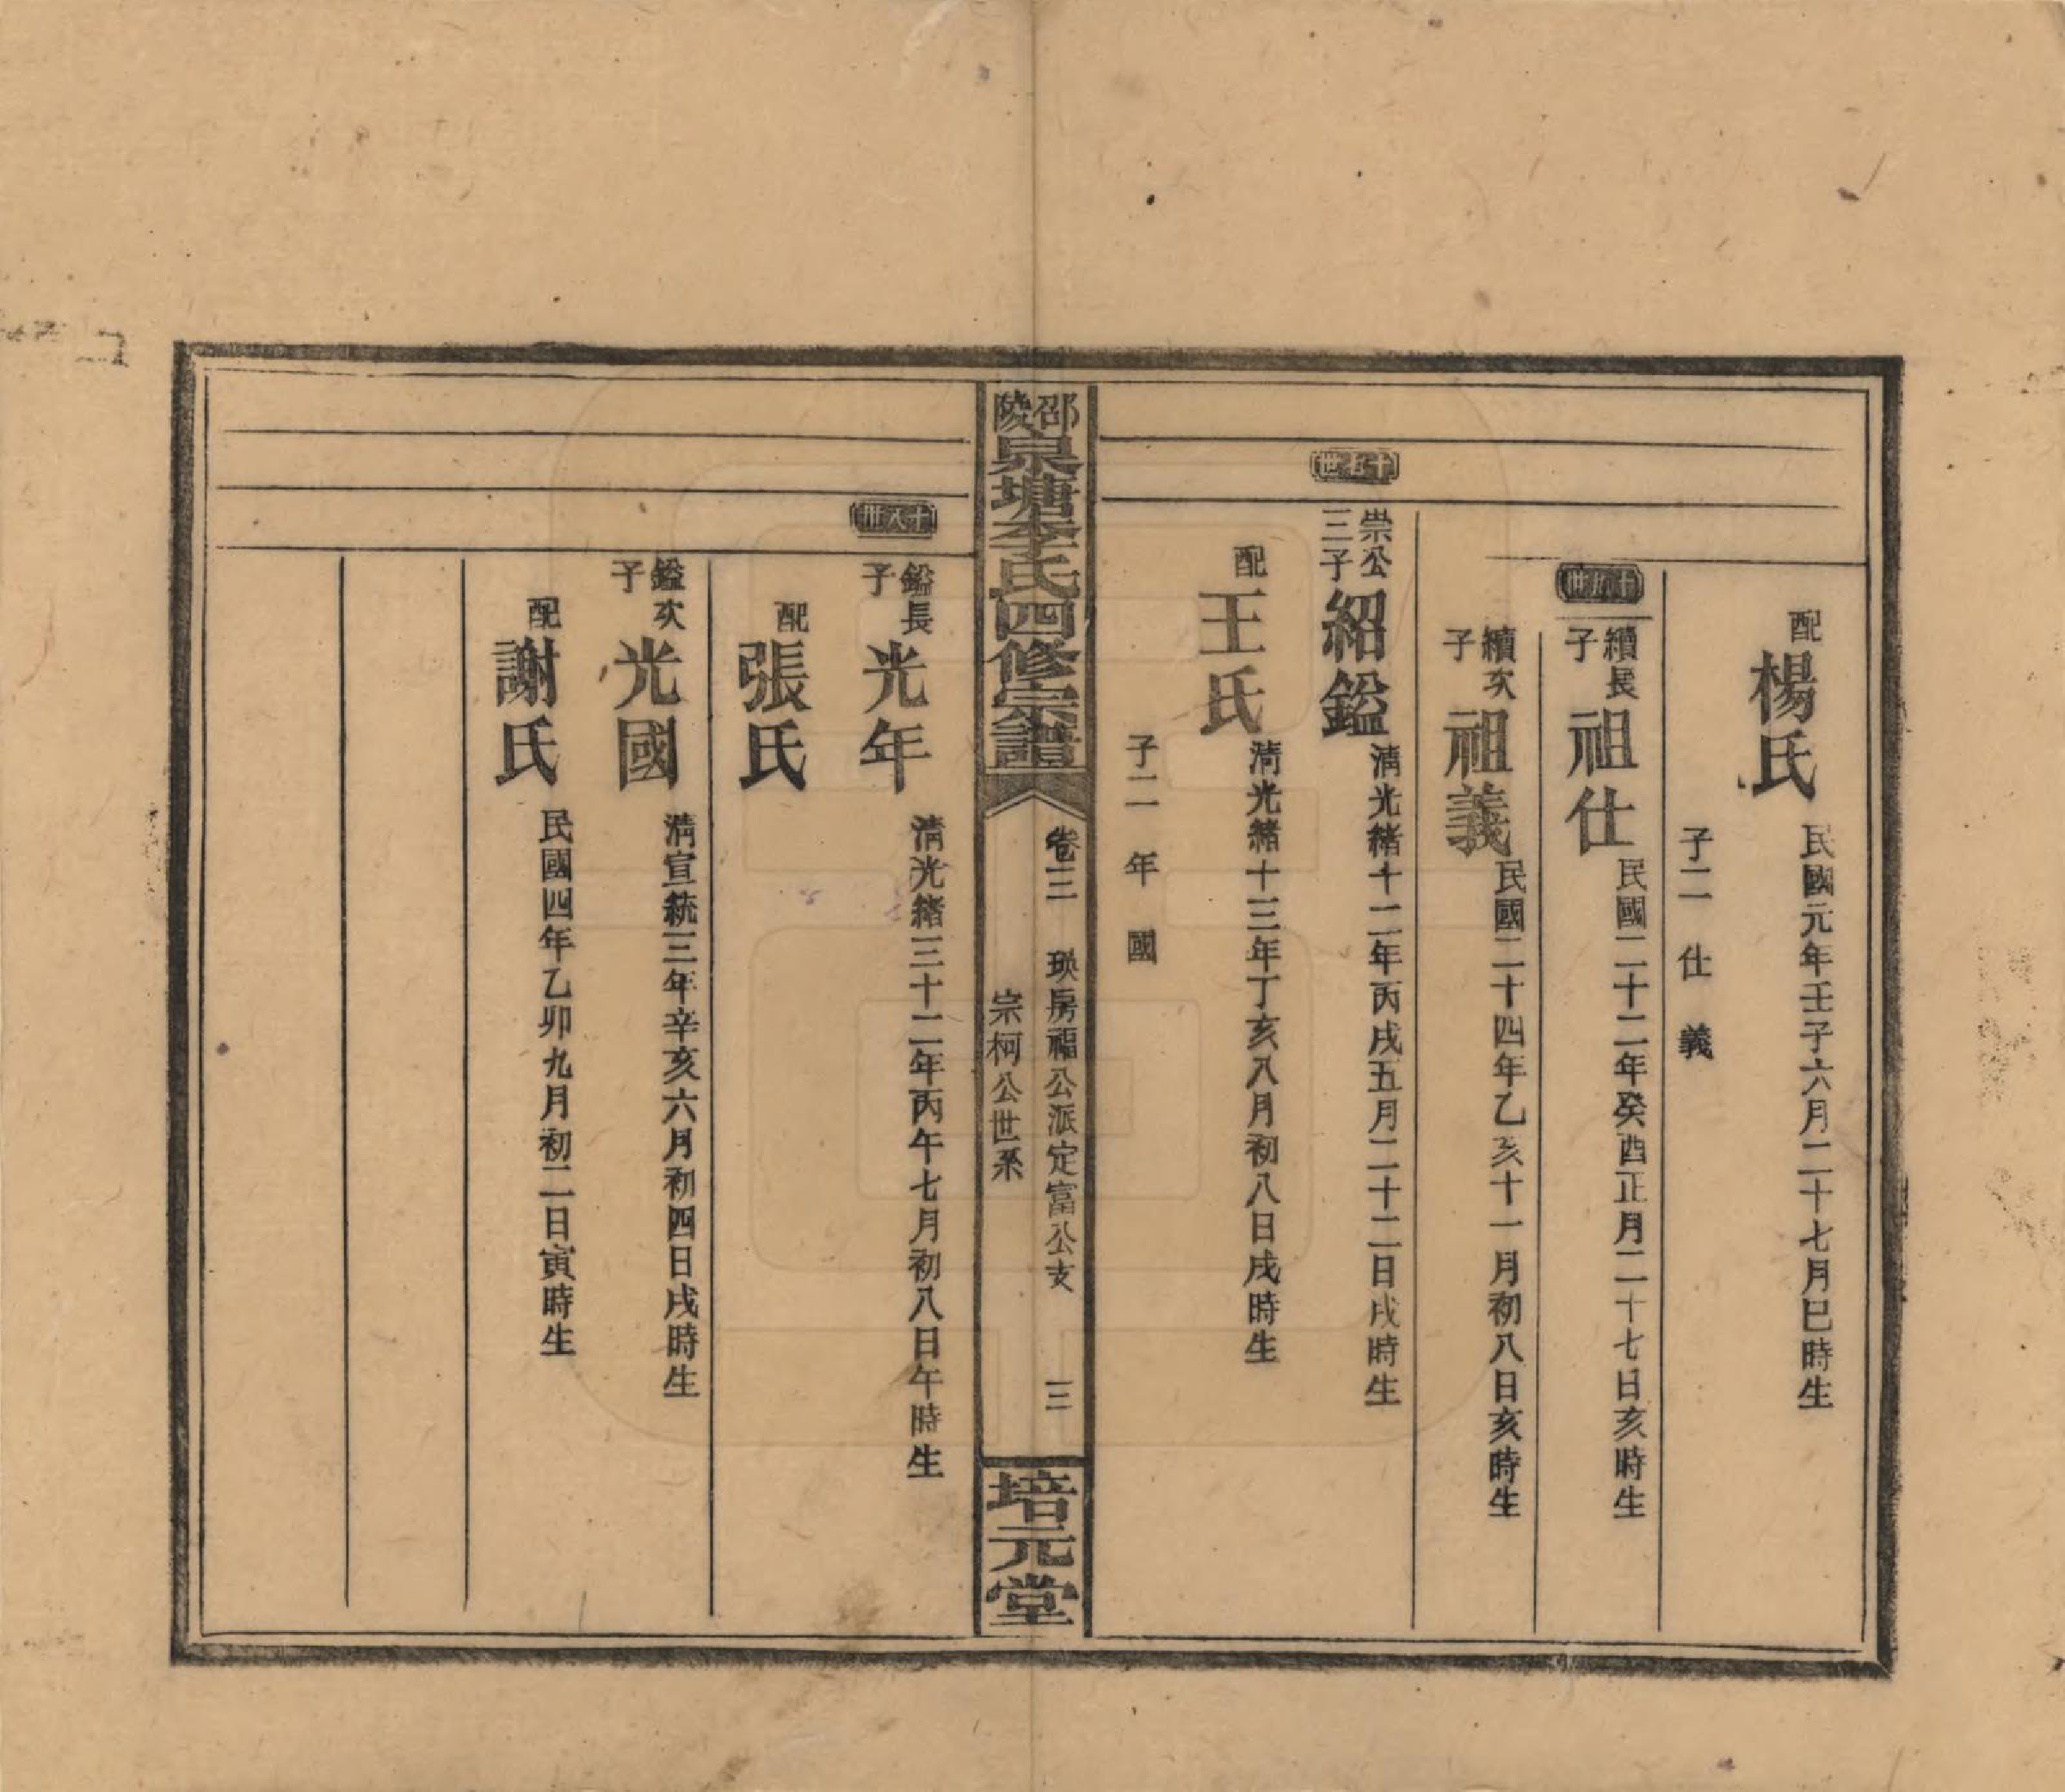 配
楊氏
民國元年壬子六月二十七月巳時生
子二 仕 義
續長子
祖仕
民國二十二年癸酉正月二十七日亥時生
續次子
祖義
民國二十四年乙亥十一月初八日亥時生
崇公三子
紹鎰
清光緒十二年丙戌五月二十二日戌時生
配
王氏
清光緒十三年丁亥八月初八日戌時生
子二 年 國
邵陵泉塘李氏四修宗譜
卷三 瑛房福公派定富公支 三
宗柯公世系
培元堂
十八世
鎰長子
光年
清光緒三十二年丙午七月初八日午時生
配
張氏
鎰次子
光國
清宣統三年辛亥六月初四日戌時生
配
謝氏
民國四年乙卯九月初二日寅時生